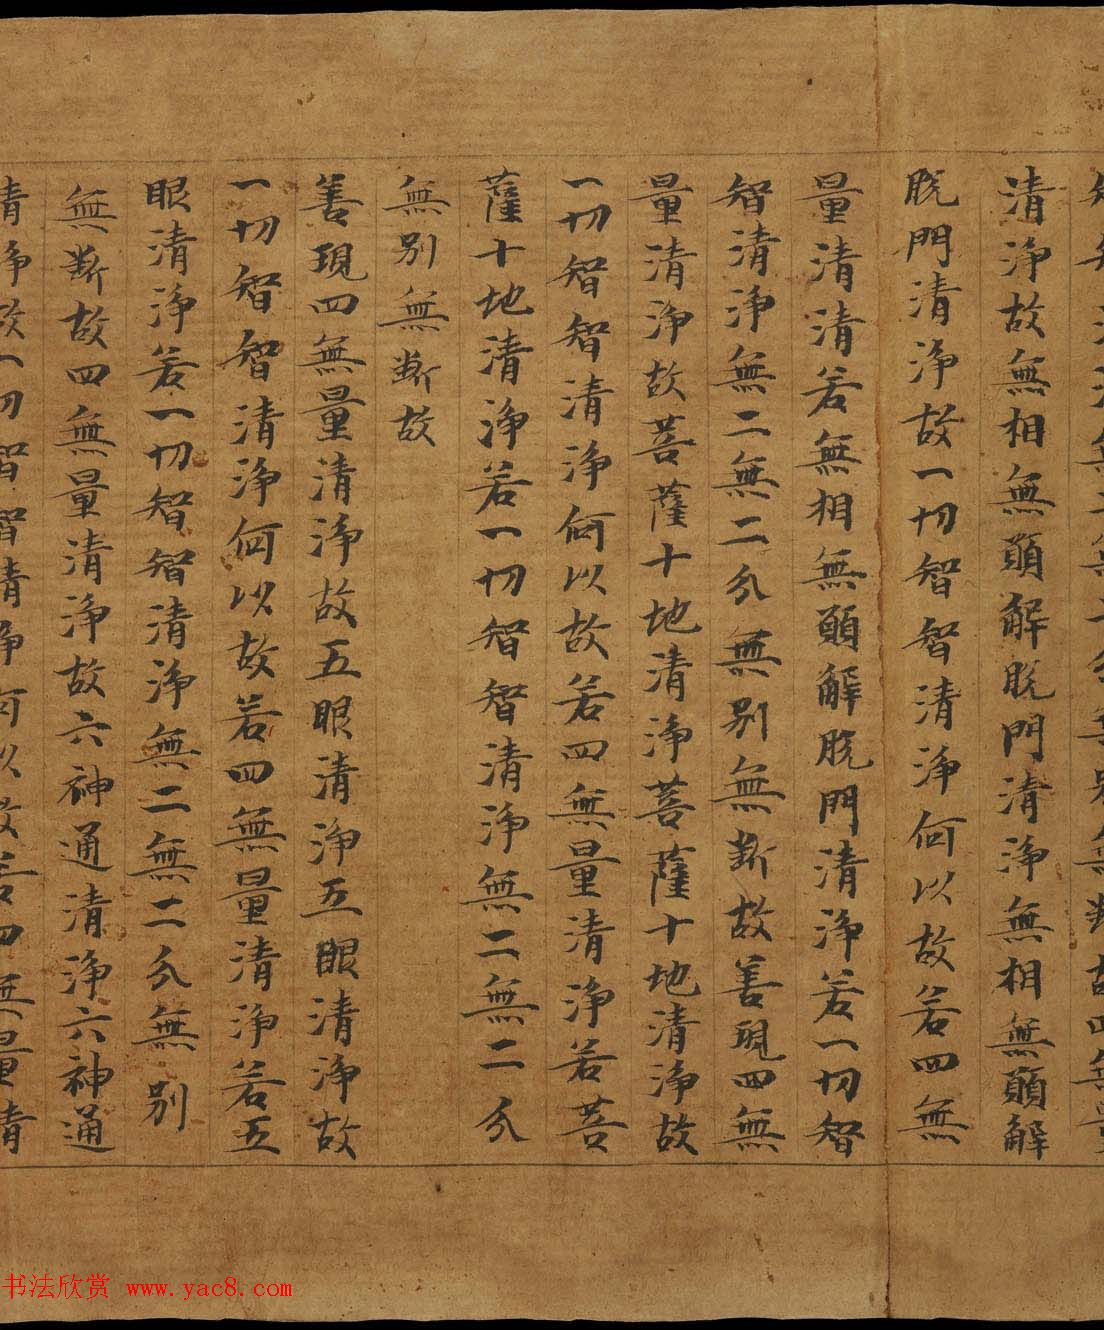 智智清淨無二無二分無別無斷故四無量
清淨故無相無願解脫門清淨無相無願解
脫門清淨故一切智智清淨何以故若四無
量清清若無相無願解脫門清淨若一切智
智清淨無二無二分無別無斷故善現四無
量清淨故菩薩十地清淨菩薩十地清淨故
一切智智清淨何以故若四無量清淨若菩
薩十地清淨若一切智智清淨無二無二分
無別無斷故
善現四無量清淨故五眼清淨五眼清淨故
一切智智清淨何以故若四無量清淨若五
眼清淨若一切智智清淨無二無二分無別
無斷故四無量清淨故六神通清淨六神通
清淨故一切智智清淨何以故若四無量清
书法欣赏 www.yac8.com